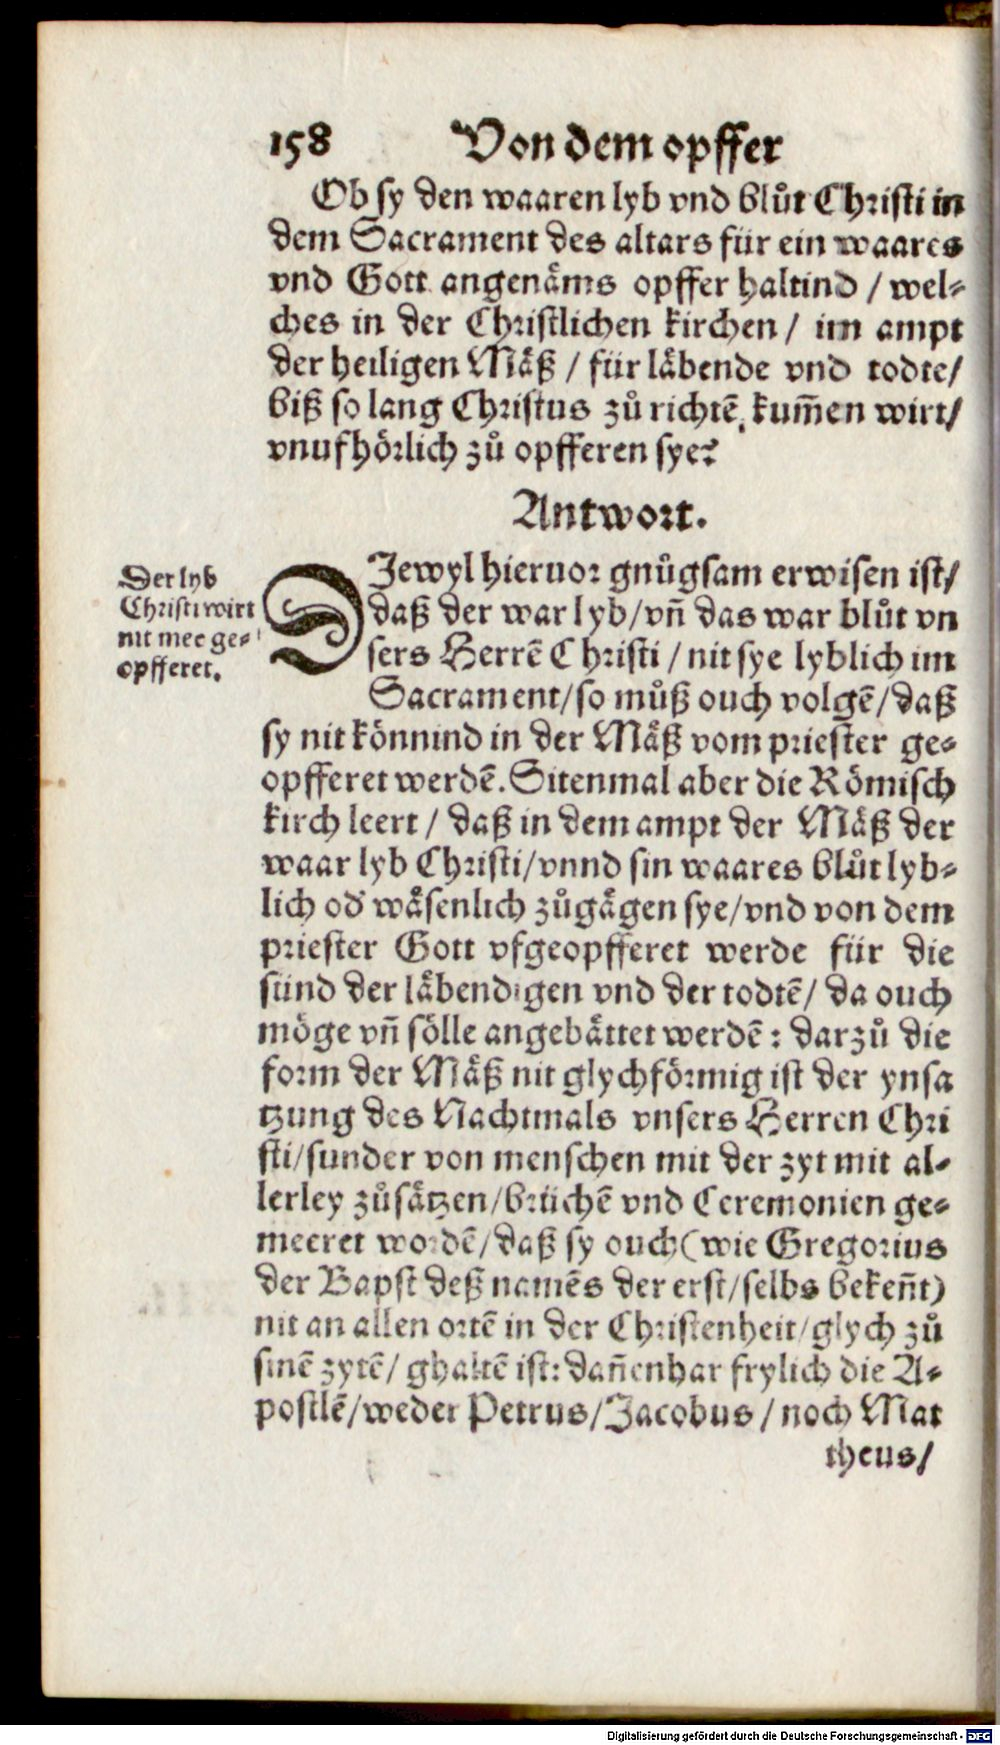 158 Von dem opffer
Ob sy den waaren lyb vnd blůt Christi in
dem Sacrament des altars für ein waares
vnd Gott angenäms opffer haltind / wel⸗
ches in der Christlichen kirchen / im ampt
der heiligen Mäß / für läbende vnd todte /
biß so lang Christus zů richtē kum̄en wirt /
vnufhörlich zů opfferen sye?
Antwort.
Der lyb
Christi wirt
nit mee ge⸗
opfferet.
DIewyl hieruor gnůgsam erwisen ist /
daß der war lyb / vn̄ das war blůt vn
sers Herrē Christi / nit sye lyblich im
Sacrament / so můß ouch volgē / daß
sy nit könnind in der Mäß vom priester ge⸗
opfferet werdē. Sitenmal aber die Römisch
kirch leert / daß in dem ampt der Mäß der
waar lyb Christi / vnnd sin waares blůt lyb⸗
lich od' wäsenlich zůgägen sye / vnd von dem
priester Gott vfgeopfferet werde für die
sünd der läbendigen vnd der todtē / da ouch
möge vn̄ sölle angebättet werdē : darzů die
form der Mäß nit glychförmig ist der ynsa
tzung des Nachtmals vnsers Herren Chri
sti / sunder von menschen mit der zyt mit al⸗
lerley zůsätzen / brüchē vnd Ceremonien ge⸗
meeret wordē / daß sy ouch (wie Gregorius
der Bapst deß namēs der erst / selbs beken̄t)
nit an allen ortē in der Christenheit / glych zů
sinē zytē / ghaltē ist : dan̄enhar frylich die A⸗
postlē / weder Petrus / Jacobus / noch Mat
theus /
Digitalisierung gefördert durch die Deutsche Forschungsgemeinschaft - DFG